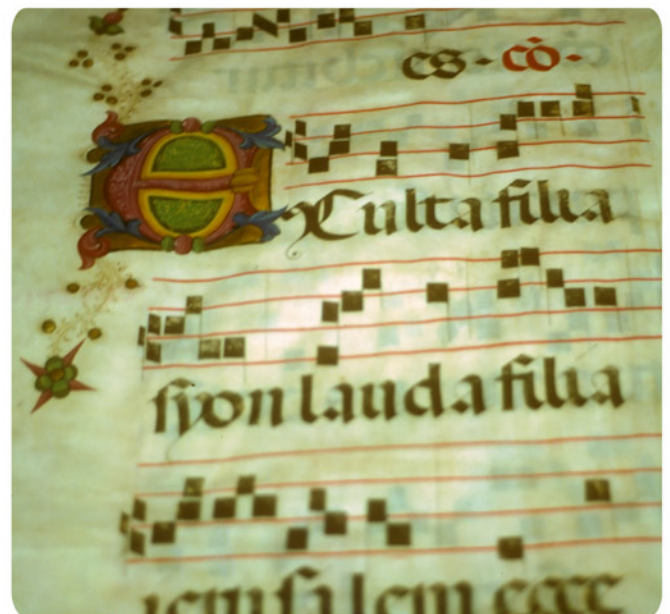 es · co ·
EXulta filia
syon lauda filia
ierusalem ecce